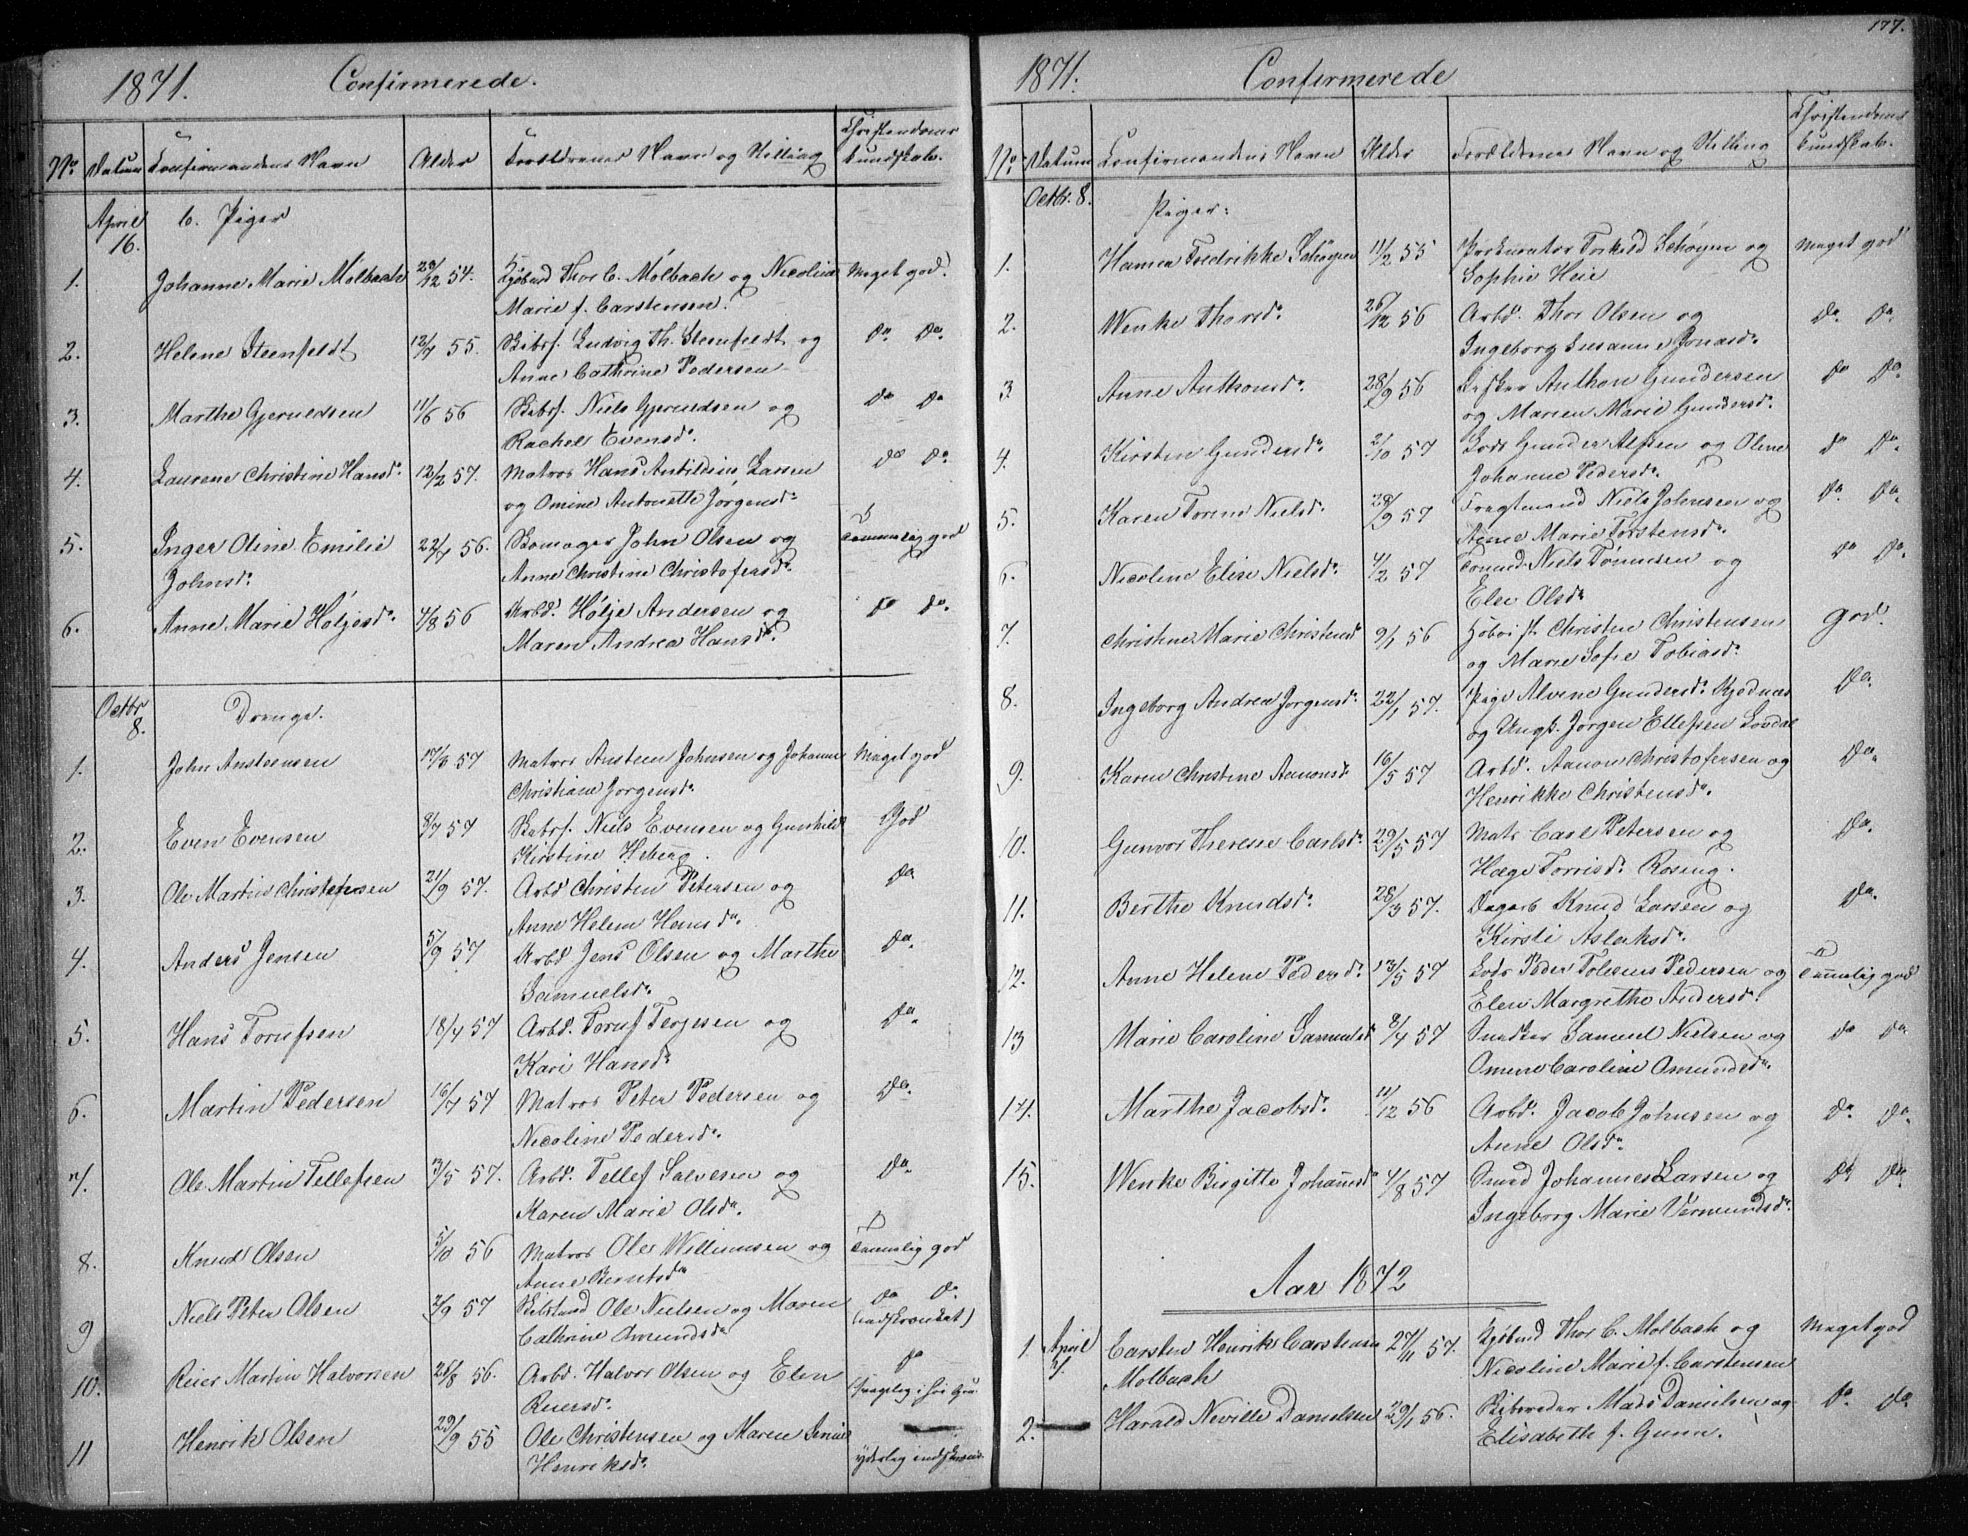 1871. Confirmerede.
No. Datum Confirmandens Navn Alder Forældrenes Navn og Stilling Christendoms kundskab.
April 16. b. Piger
1. Johanne Marie Molbach 29/12 54. Kjøbmd Thor C. Molbach og Nicoline Meget god
Marie f. Carstensen.
2. Helene Steenfeldt 12/7 55. Skibsf. Ludvig Th. Steenfeldt og do do
Anne Cathrine Pedersen
3. Marthe Gjeruldsen 11/6 56 Skibsf. Niels Gjeruldsen og do do
Rachel Evensd.
4. Laurene Christine Hansd. 12/2 57. Matros Hans Larsen do do
og Omine Antonette Jörgensd.
5. Inger Oline Emilie 22/7 56. John Olsen og temmelig god
Johnsd. Anne Christine Christofersd.
6. Anne Marie Holjesd. 4/8 56 Arbd. Holje Andersen og do do
Maren Andrea Hansd.
Octbr 8. Drenge.
1. John Anstensen 17/3 57 MatrosAnsten Johnsen og Johanne Meget god
Christiane Jorgensd.
2. Even Evensen 8/7 57 Skibsf. Niels Evensen og Gunhild God
Kirstine Heberg.
3. Ole Martin Christensen 21/9 57. Arbd Christen Petersen og do
Anne Helene Hansd.
4. Anders Jensen 5/9 57 Arbd Jens Olsen og Marthe do
Samuelsd.
5. Hans Torufsen 18/7 57 Arbd. Toruf Terjesen og do
Kari Hansd.
6. Martin Pedersen 16/7 57 Matros Peter Pedersen og do
Nicoline Pedersd.
7. Ole Martin Tellefsen 3/5 57. Arbd. Tellef Salvesen og do
Karen Marie Olsd.
8. Knud Olsen 5/10 56 Matros Ole Williamsen og temmelig god
Anne Berntsd.
9 Niels Peter Olsen 2/9 57 Ole Nielsen og Maren do do
Cathrine Omundsd. (indskrænket)
10. Reier Martin Halvorsen 28/8 56. Arbd. Halvor Olsen og Elen do
Reiersd.
11 Henrik Olsen 29/9 55 Ole Christensen og Maren
Henriksd. yderlig indskrænk.
177.
1871. Confirmerede
No. Datum Confirmandens Navn Alder Forældrenes Navn og Stilling Christendoms kundskab.
Octbr. 8. Piger:
1. Hanna Fredrikke Schöyen 11/2 55 Prokurator Torkild Schöyen og Meget god
Sophie Heie
2. Wenke Thorsd. 26/12 56 Arbd. Thor Olsen og do do
Ingeborg Susanne Jonasd.
3. Anne Anthonsd. 28/9 56 Anthon Gundersen do do
og Maren Marie Gundersd.
4. Kirsten Gundersd. 2/10 57 Lods Gunder Alfsen og Oline do do
Johanne Pedersd.
5. Karen Torine Nielsd. 28/9 57 Fragtemand Niels Johnsen og do do
Anne Marie Torstensd.
6. Nicoline Elise Nielsd. 4/2 57 Niels Tönnesen og do do
Elen Olsd.
7. Christine Marie Christensd. 9/1 56 Christen Christensen god.
og Marie Sofie Tobiasd.
8. Ingeborg Andrea Jorgensd. 22/1 57. Pige Alvine Gundersd. og do
og Ungk. Jorgen Ellefsen Lovdal
9. Karen Christine Aanonsd. 16/5 57 Arbd. Aanon Christofersen og do
Henrikke Christensd.
10. Gunvor Therese Carlsd. 29/5 57 Matr Carl Petersen og do.
Hæge Torrisd. Roseng.
11. Berthe Knudsd. 28/3 57. Dagarb Knud Larsen og do.
Kirsti Aslaksd.
12. Anne Helene Pedersd. 13/5 57 Lods Peder Pedersen og temmelig god
Elen Margrethe Andersd.
13 Marie Caroline Samuelsd 8/7 57 Snedker Samuel Nielsen og do do
Omine Caroline Omundsd.
14. Marthe Jacobsd. 11/12 56 Arbd. Jacob Johnsen og do do
Anne Olsd.
15. Wenke Birgitte Johannsd 4/8 57 Smed Johannes Larsen og do do
Ingeborg Marie Vermundsd.
Aar 1872
1. April Carsten Henrik Carstensen 27/11 57. Kjøbmd Thor C. Molbach og Meget god
Molbach Nicoline Marie f. Carstensen
2. Harald Neville Danielsen 29/1 56. Skibsreder Mads Danielsen og do do
Elisabeth f. Gunn.